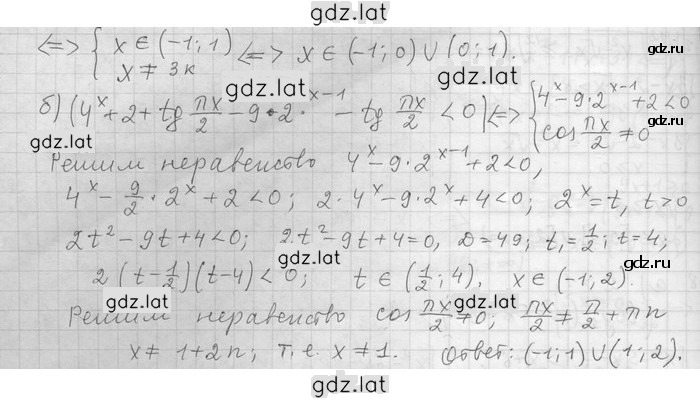 gdz.lat
⟺ { x ∈ (-1; 1) x ≠ 3к ⟺ x ∈ (-1; 0) ∪ (0; 1).
gdz.lat
gdz.lat
б) (4^x + 2 + tg πx/2 - 9 · 2^{x-1} - tg πx/2 < 0) ⟺ { 4^x - 9 · 2^{x-1} + 2 < 0 cos πx/2 ≠ 0
gdz.lat
gdz.lat
Решим неравенство 4^x - 9 · 2^{x-1} + 2 < 0,
4^x - 9/2 · 2^x + 2 < 0; 2 · 4^x - 9 · 2^x + 4 < 0; 2^x = t, t > 0
gdz.lat
2t² - 9t + 4 < 0; 2·t² - 9t + 4 = 0, D = 49; t₁ = 1/2; t = 4;
gdz.lat
2 (t - 1/2)(t - 4) < 0; t ∈ (1/2; 4), x ∈ (-1; 2).
gdz.lat
gdz.lat
Решим неравенство cos πx/2 ≠ 0; πx/2 ≠ π/2 + πn
x ≠ 1 + 2n; т.е. x ≠ 1. Ответ: (-1; 1) ∪ (1; 2).
gdz.lat
gdz.lat
gdz.lat